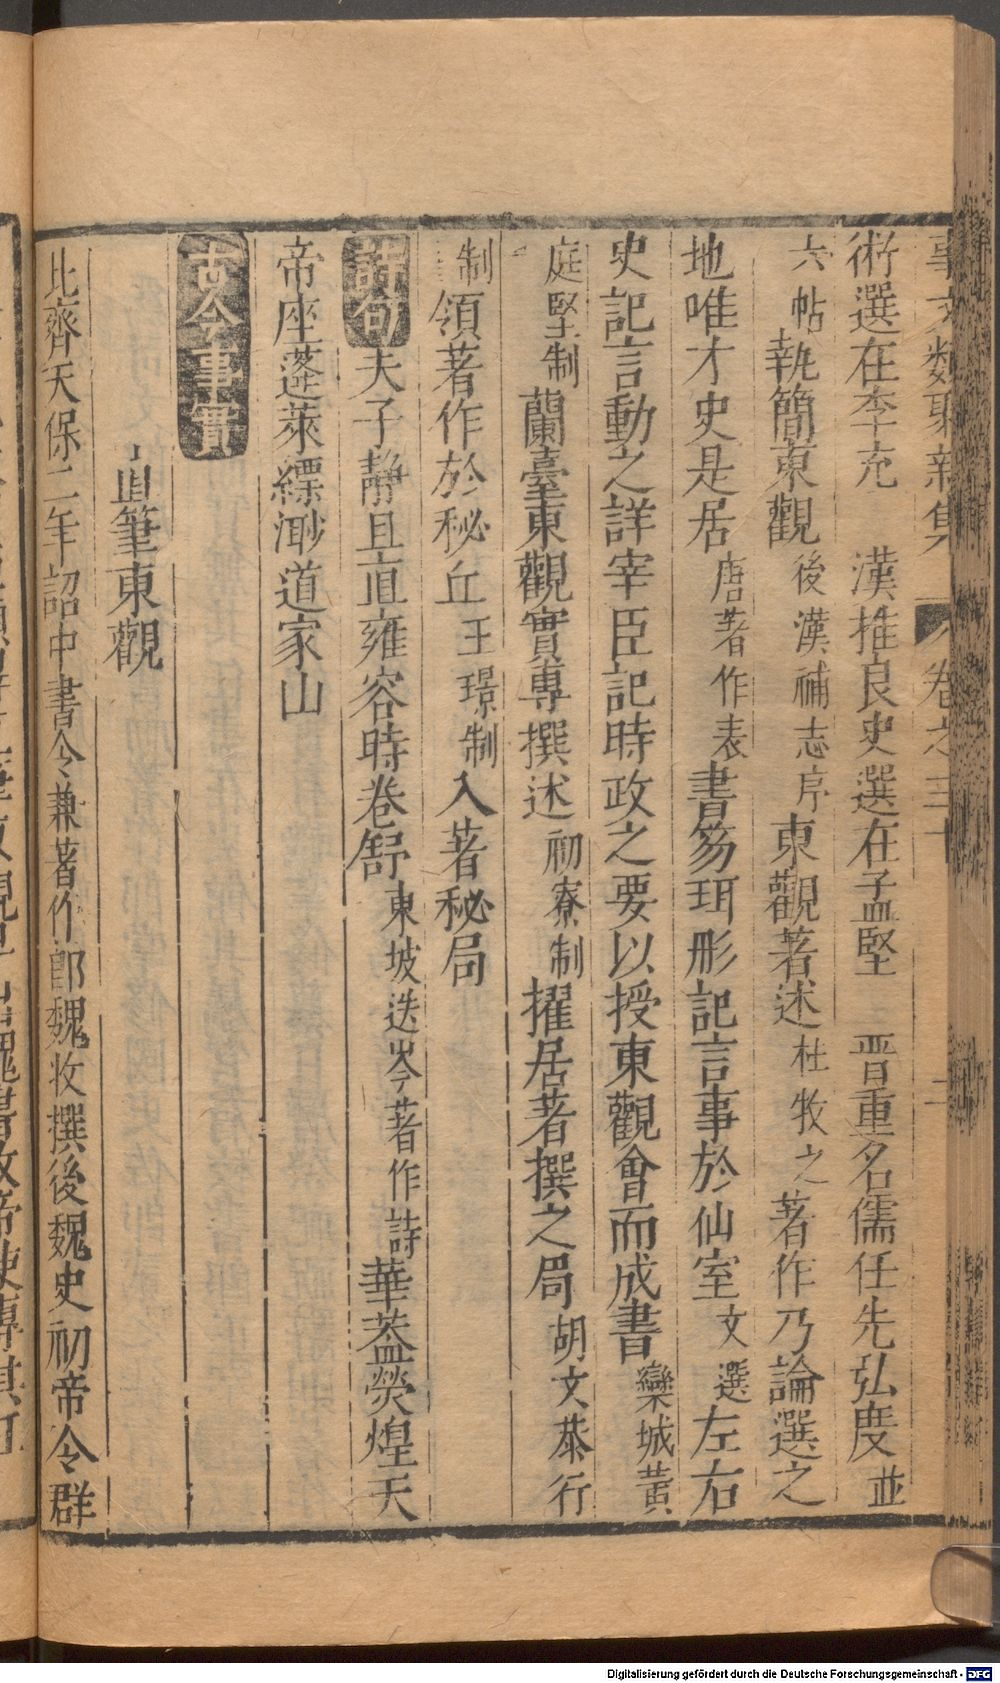 事文類聚新集 卷之三十 二
術選在李充 漢推良史選在孟堅 晋重名儒任先弘度並
六帖執簡東觀後漢補志序東觀著述杜牧之著作乃論選之
地唯才史是居唐著作表書笏珥彤記言事於仙室文選左右
史記言動之詳宰臣記時政之要以授東觀會而成書欒城黃
庭堅制蘭臺東觀實專撰述初寮制擢居著撰之局胡文恭行
制領著作於秘丘王璟制入著秘局
詩句夫子靜且直雍容時卷舒東坡送岑著作詩華蓋熒煌天
帝座蓬萊縹渺道家山
古今事實
直筆東觀
北齊天保二年詔中書令兼著作郎魏收撰後魏史初帝令群
Digitalisierung gefördert durch die Deutsche Forschungsgemeinschaft - DFG